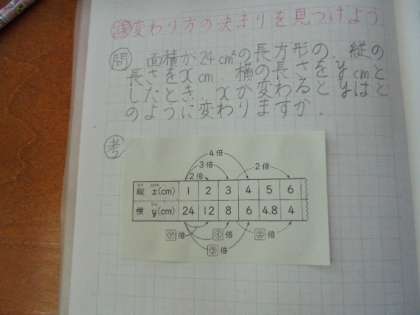 変わり方の決まりを見つけよう
問 面積が24cm²の長方形の、縦の
長さをxcm、横の長さをycmと
したとき、xが変わるとyはど
のように変わりますか。
考
4倍
3倍
2倍 2倍
縦 x(cm) 1 2 3 4 5 6
横 y(cm) 24 12 8 6 4.8 4
倍 倍 倍
倍